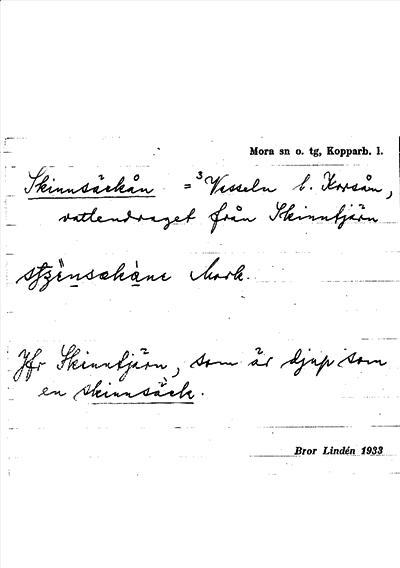 Mora sn o. tg, Kopparb. l.
Skinnsäckån = ³Vesseln l. Korsån,
vattendraget från Skinntjärn
Mork.
Jfr Skinntjärn, som är djup som
en skinnsäck.
Bror Lindén 1933